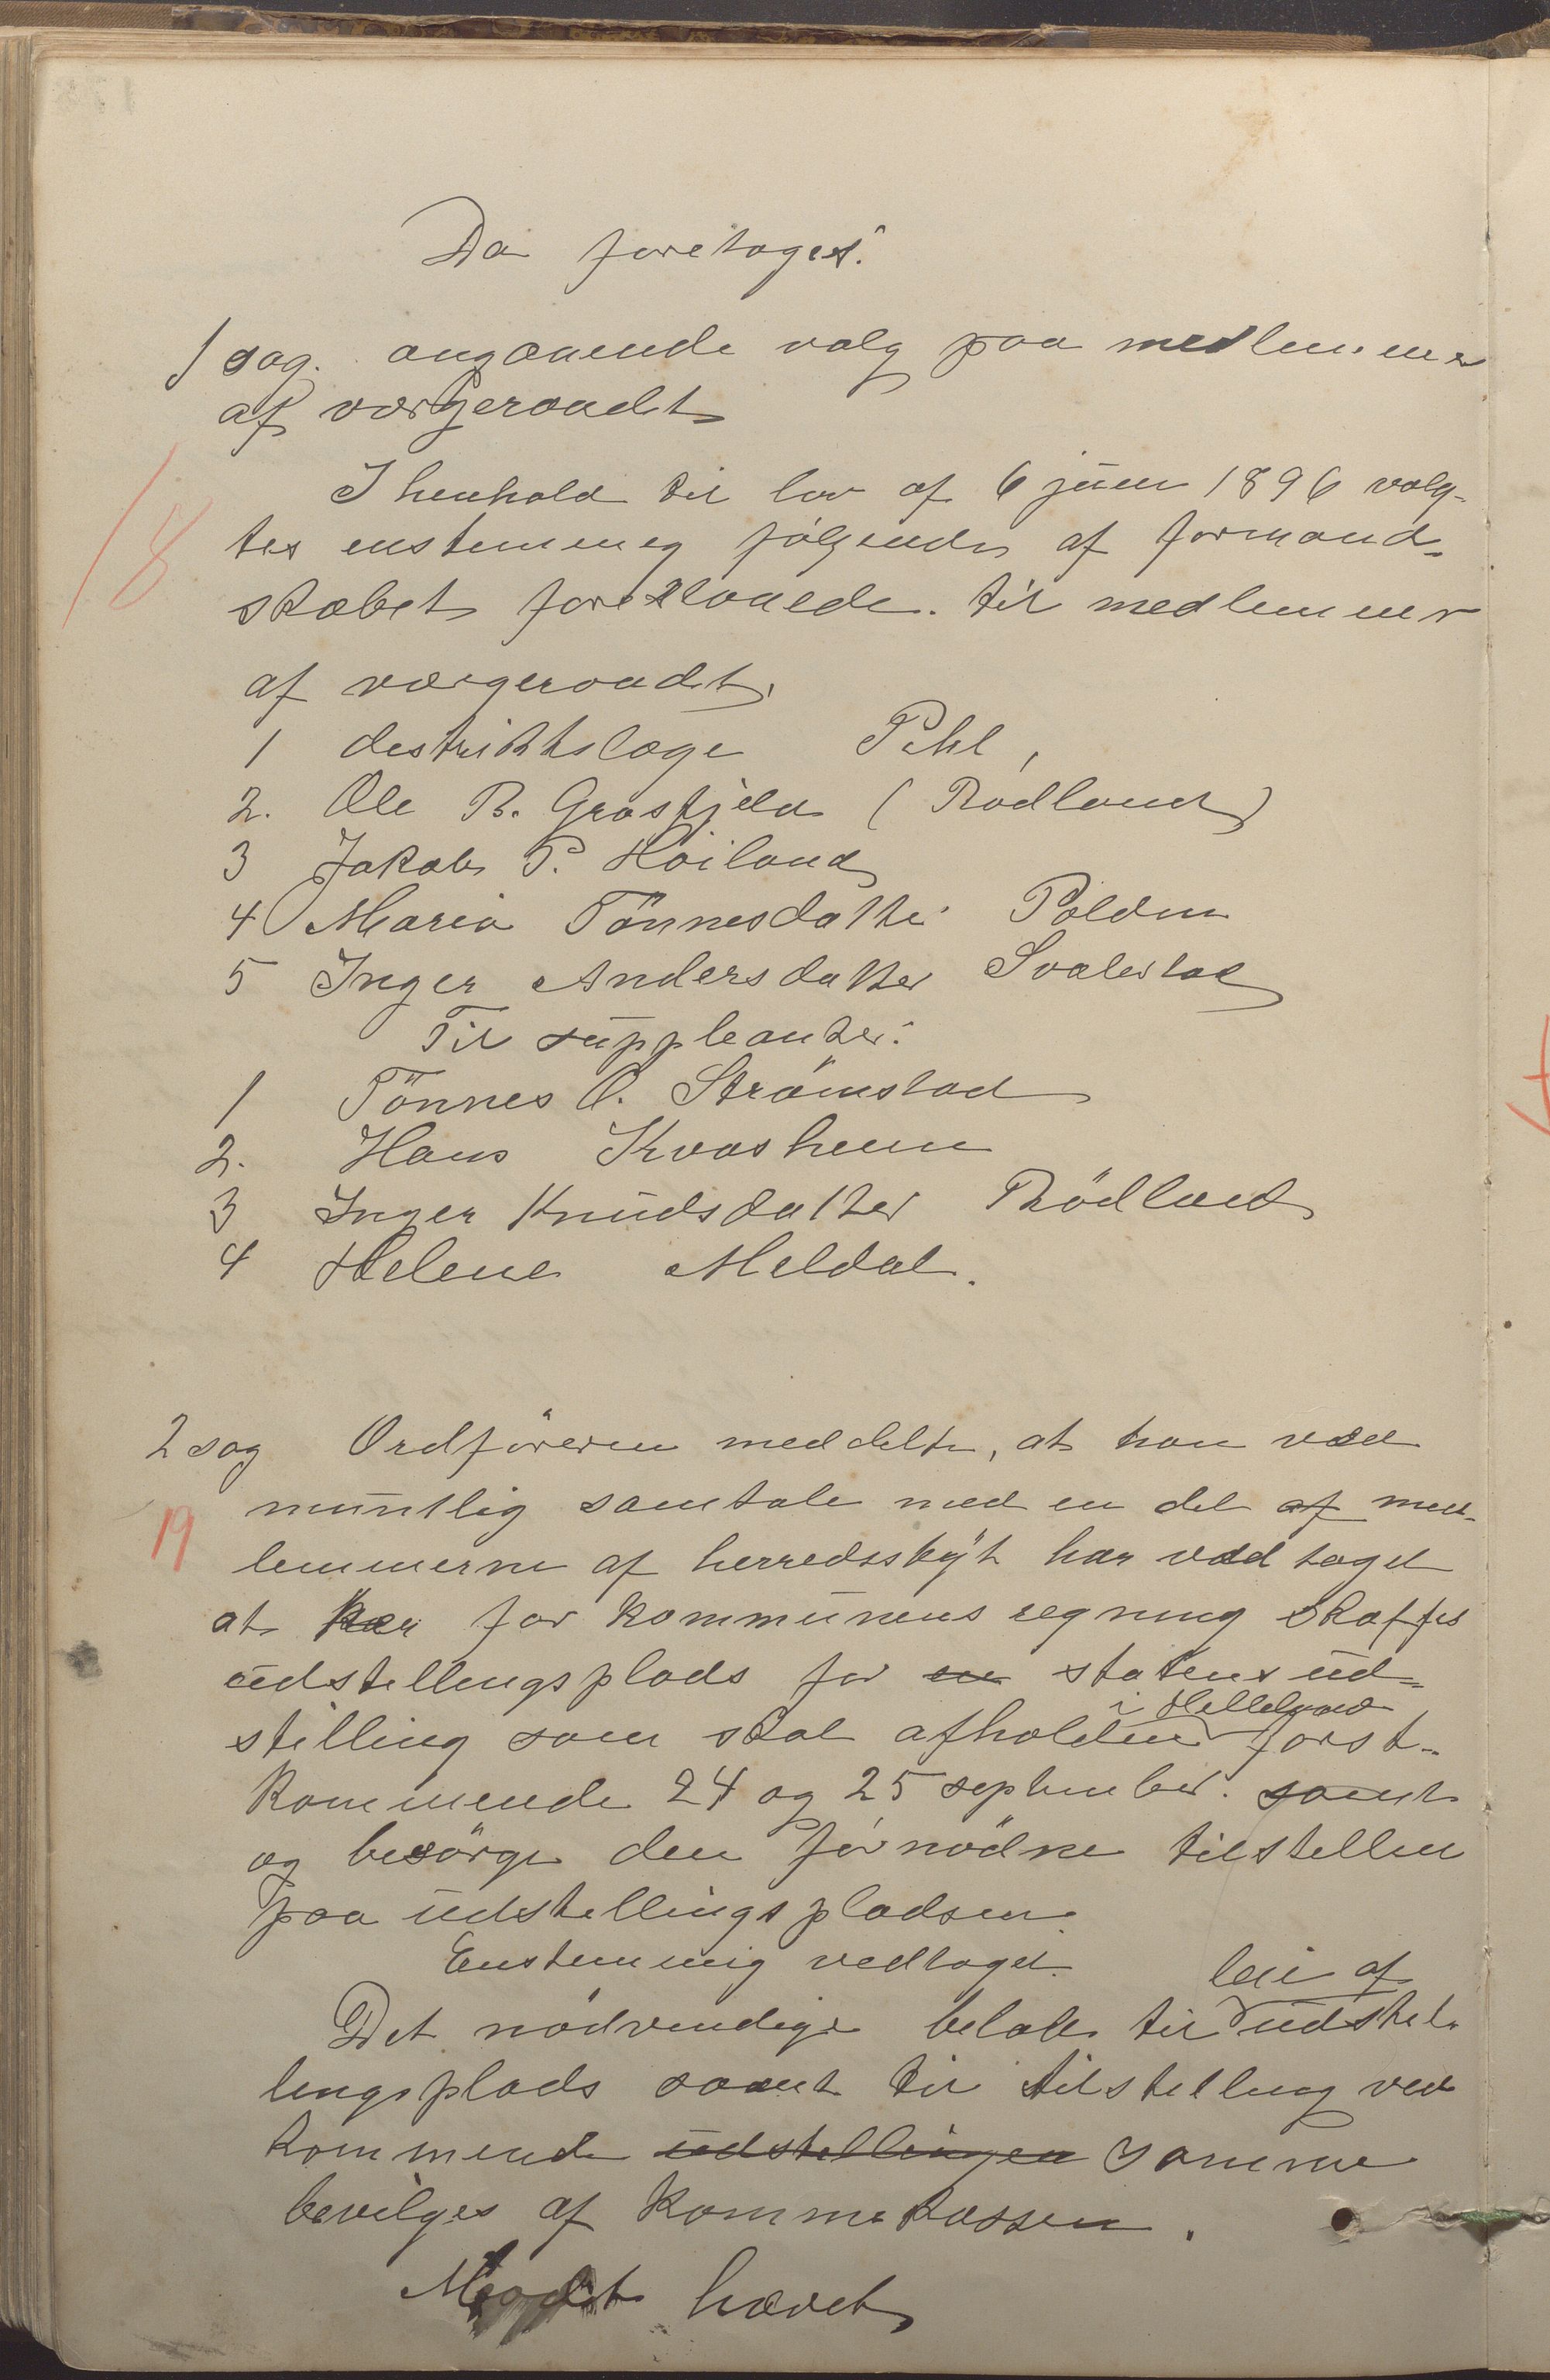 Da foretoges:
1 sag. angaaende valg paa medlemmer
af værgeraadet
18
I henhold til lov af 6 juni 1896 valg-
tes enstemmig følgende af formand-
skabet foreslaaede til medlemmer
af værgeraadet.
1 destriktslæge Pihl,
2. Ole B. Grøsfjeld (Rødland)
3 Jakob P. Høiland
4 Maria Tönnesdatter Polden
5 Inger Andersdatter Svalestad
Til suppleanter:
1 Tönnes O. Strömstad
2. Hans Kvasheim
3 Inger Knudsdatter Rödland
4 Helene Meldal.
2 sag Ordföreren meddelte, at han ved
19 muntlig samtale med en del af med-
lemmerne af herredsstyt har vedtaget
at her for kommunens regning skaffes
udstellingsplads for en statens ud-
stilling som skal afholdes i Helleland først-
kommende 24 og 25 september. samt
og besörge den fornödne tilstellen
paa udstellingspladsen.
Enstemmig vedtaget.
Det nödvendige belöb til leie af udstel-
lingsplads samt til tilstelling ved
kommende udstellingen samme
bevilges af kommekassen.
Mödet hævet